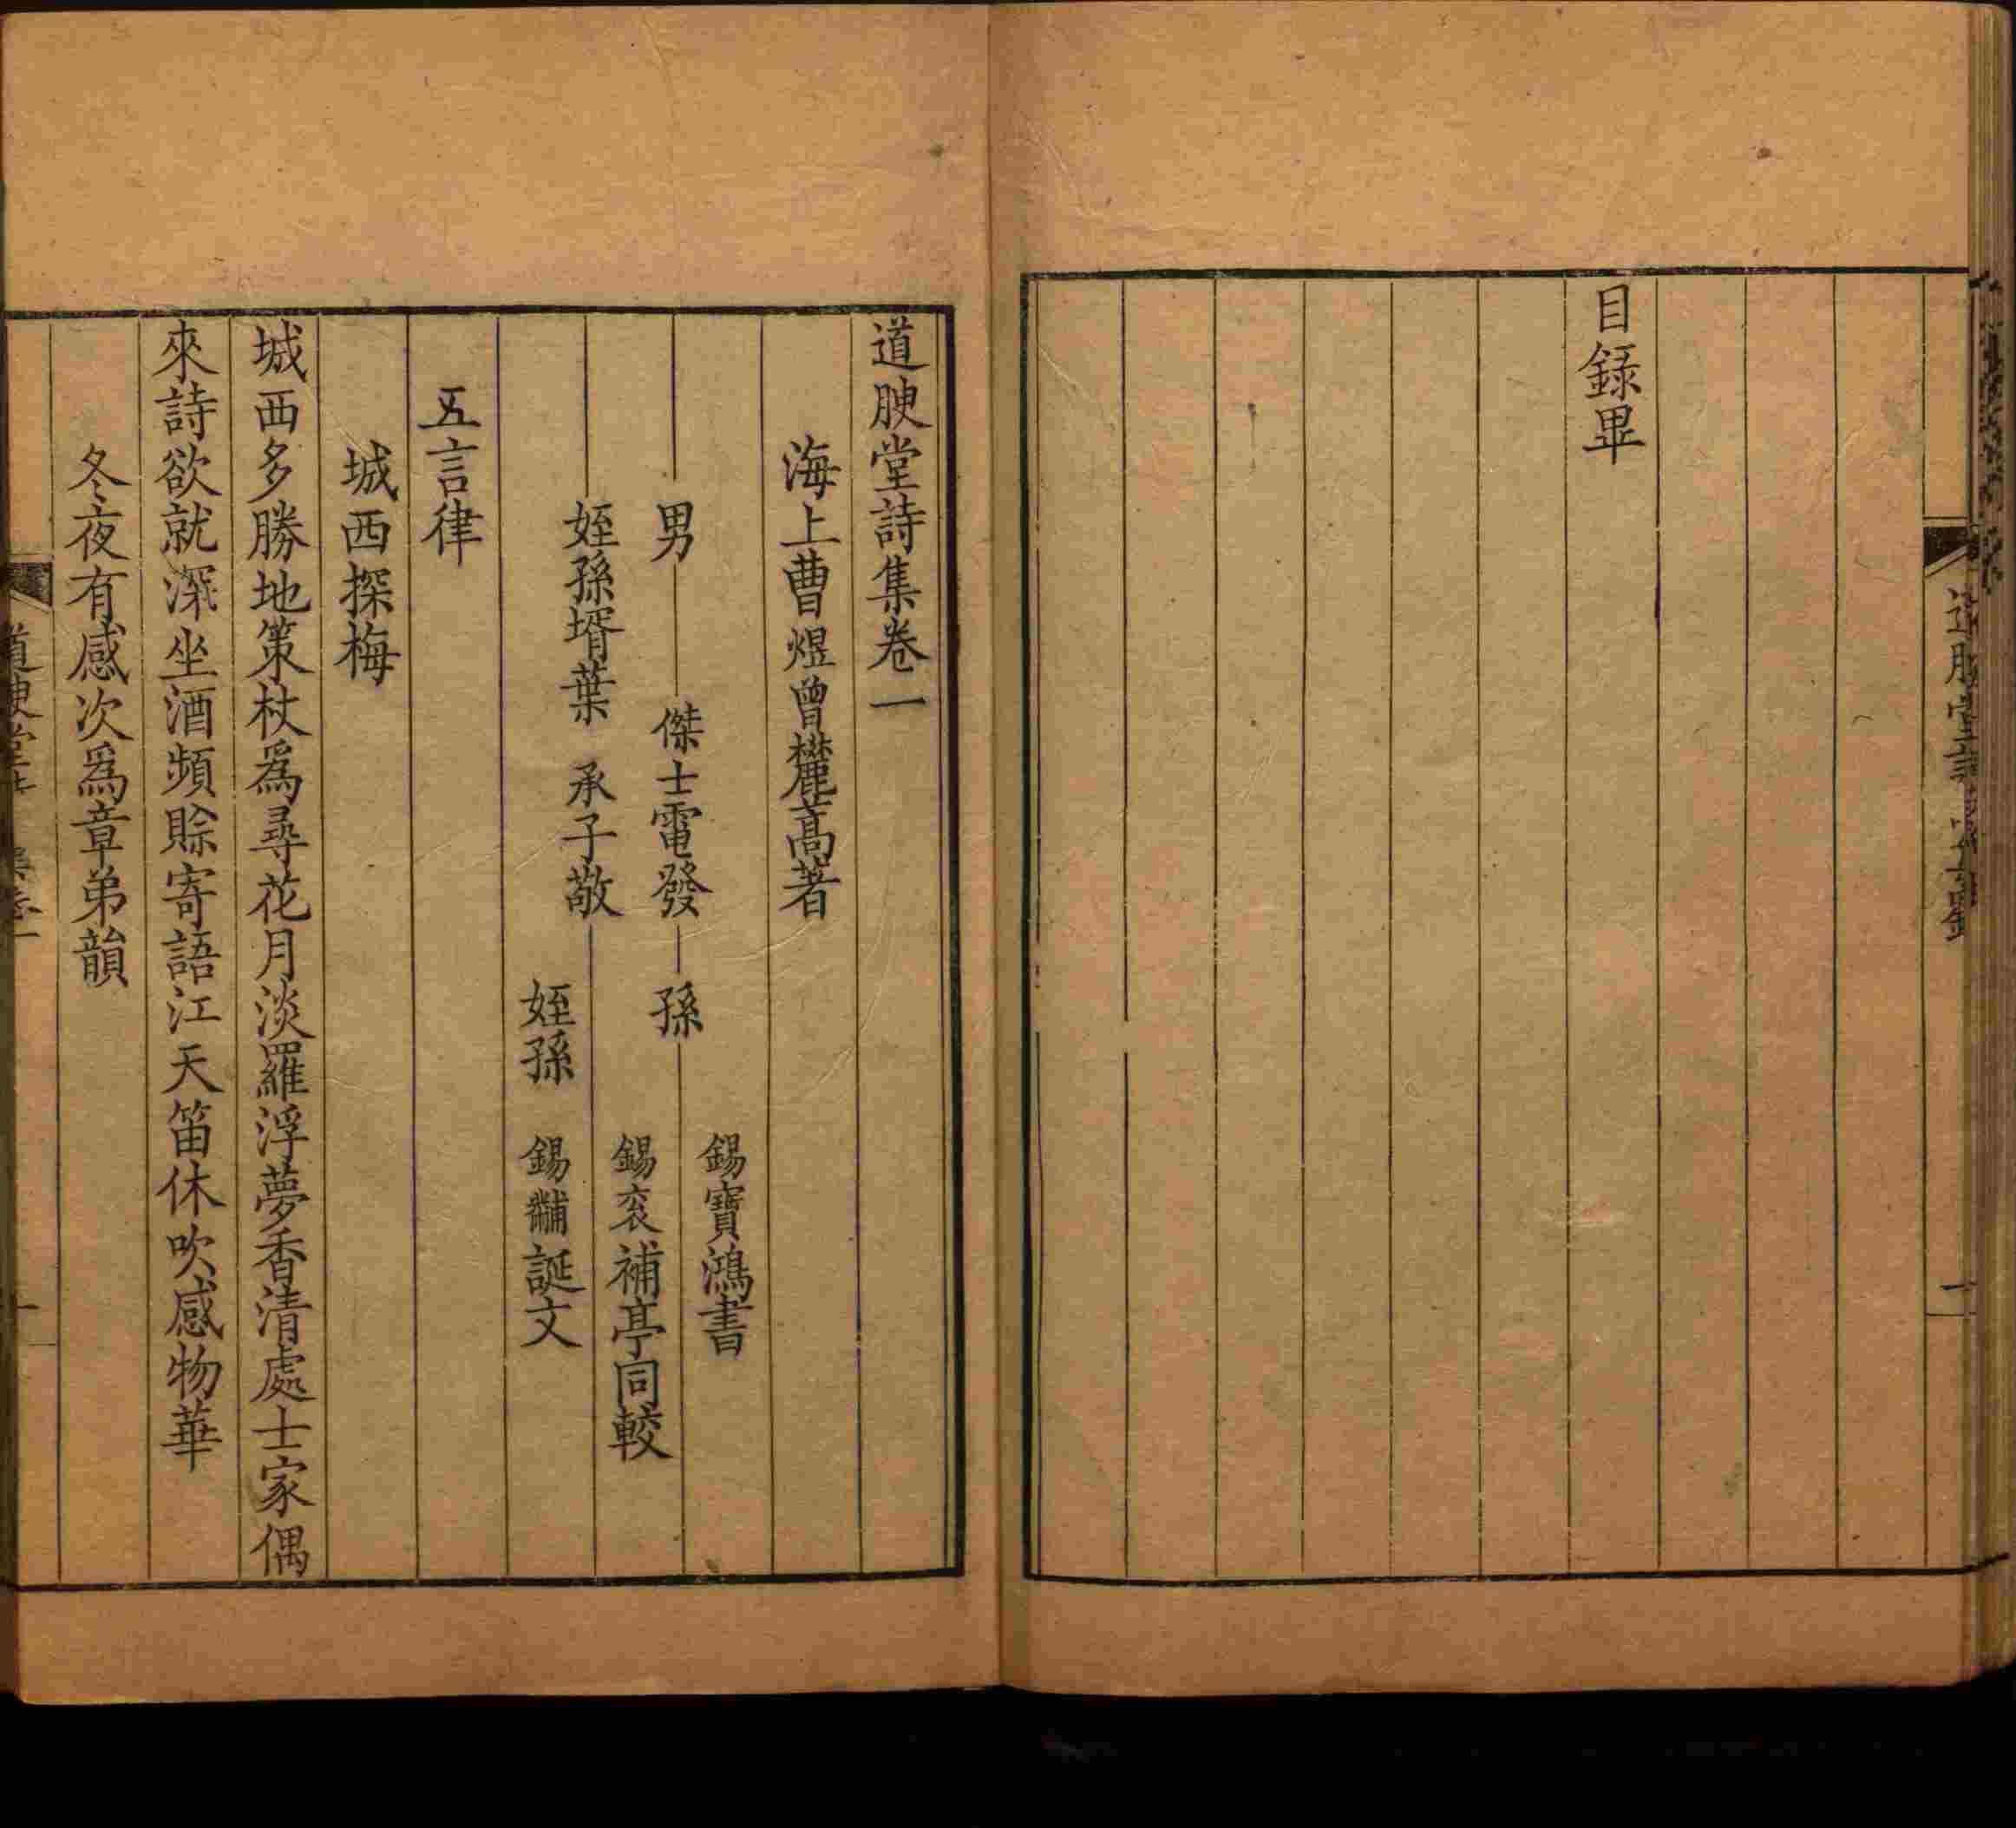 目錄畢
道腴堂詩集卷一
海上曹煜曾麓蒿著
男
傑士電發
孫
錫寶鴻書
錫袞補亭同較
姪孫壻葉
承子敬
姪孫
錫黼誕文
五言律
城西探梅
城西多勝地策杖爲尋花月淡羅浮夢香清處士家偶
來詩欲就深坐酒頻賒寄語江天笛休吹感物華
冬夜有感次爲章弟韻